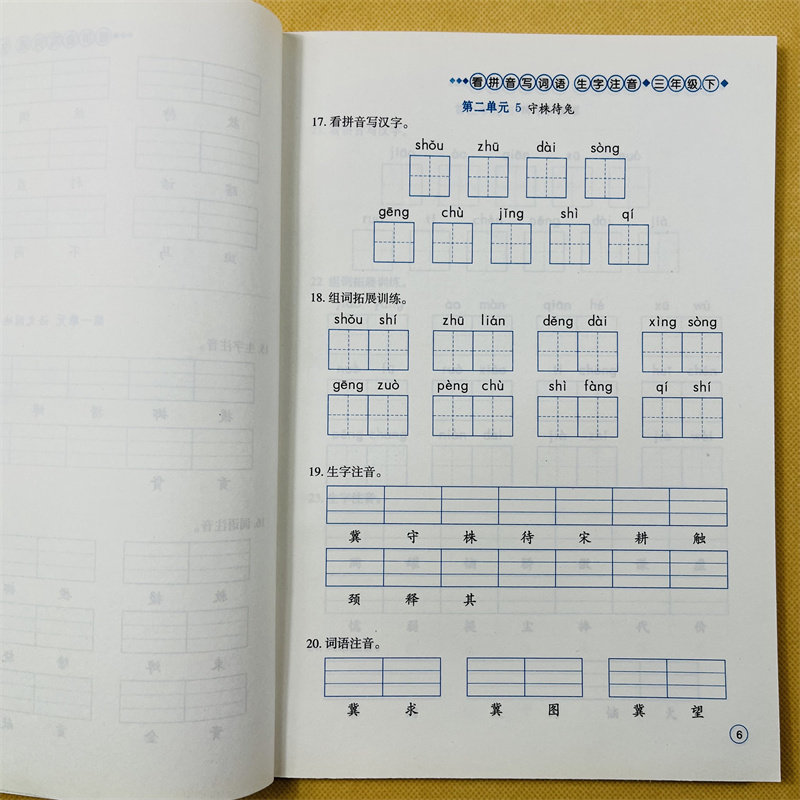 看拼音写词语 生字注音 三年级下
第二单元 5 守株待兔
17. 看拼音写汉字。
shǒu zhū dài sòng
gēng chù jǐng shì qí
18. 组词拓展训练。
shǒu shí zhū lián děng dài xìng sòng
gēng zuò pèng chù shì fàng qí shí
19. 生字注音。
冀 守 株 待 宋 耕 触
颈 释 其
20. 词语注音。
冀 求 冀 图 冀 望
6